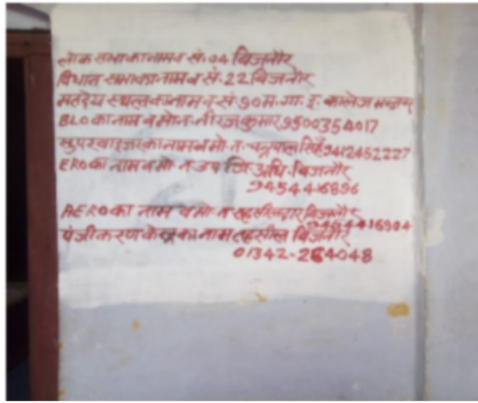 लोक सभा का नाम व सं. 04 बिजनौर
विधान सभा का नाम व सं. 22 बिजनौर
मतदेय स्थल का नाम व सं 90 म. गा. इ. कालेज
BLO का नाम व मो न नीरज कुमार 9500354017
सुपरवाइजर का नाम व मो न. सिंह 9412452227
ERO का नाम व मो न उप जि अधि. बिजनौर
9454416896
AERO का नाम व मो न तहसीलदार बिजनौर
पंजीकरण केन्द्र का नाम तहसील बिजनौर
01342-264048